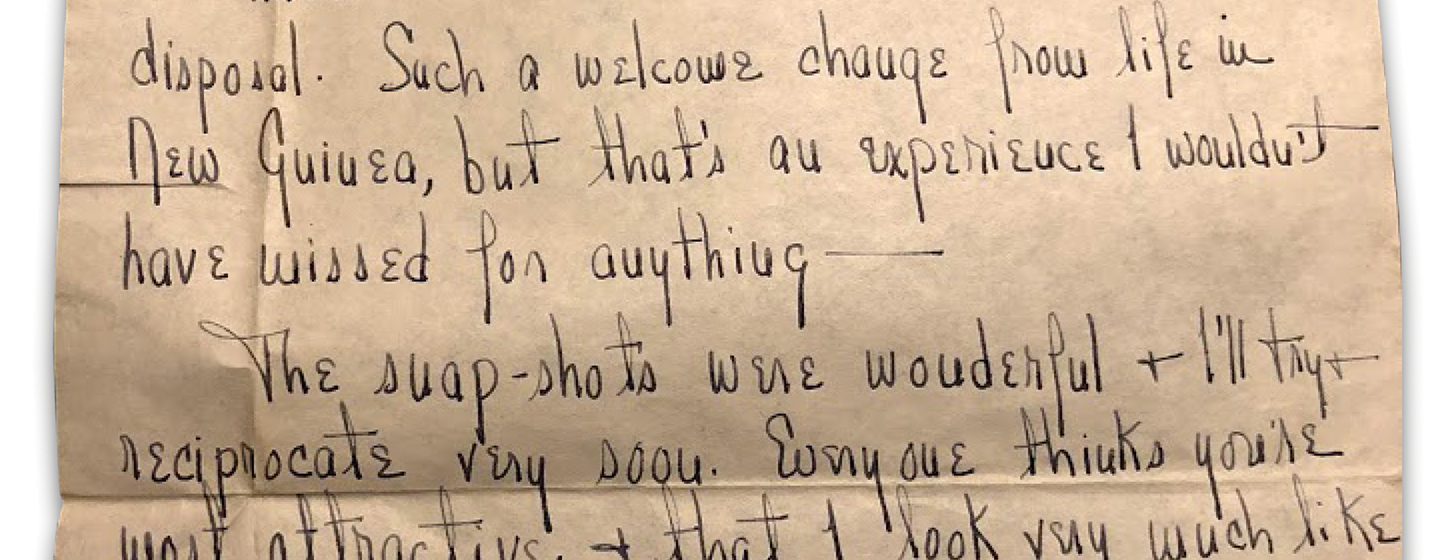 disposal. Such a welcome change from life in
New Guinea, but that's an experience I wouldn't
have missed for anything —
The snap-shots were wonderful + I'll try +
reciprocate very soon. Everyone thinks you're
most attractive, + that I look very much like